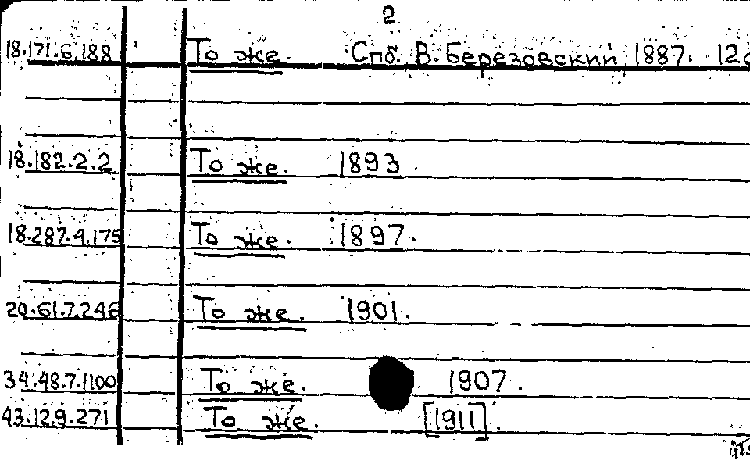 2
18.171.6.188 То же. Спб. В. Березовский, 1887. 12
18.182.2.2 То же. 1893.
18.287.4.175 То же. 1897.
20.61.7.246 То же. 1901.
34.48.7.1100 То же. 1907.
43.12.9.271 То же. [1911].